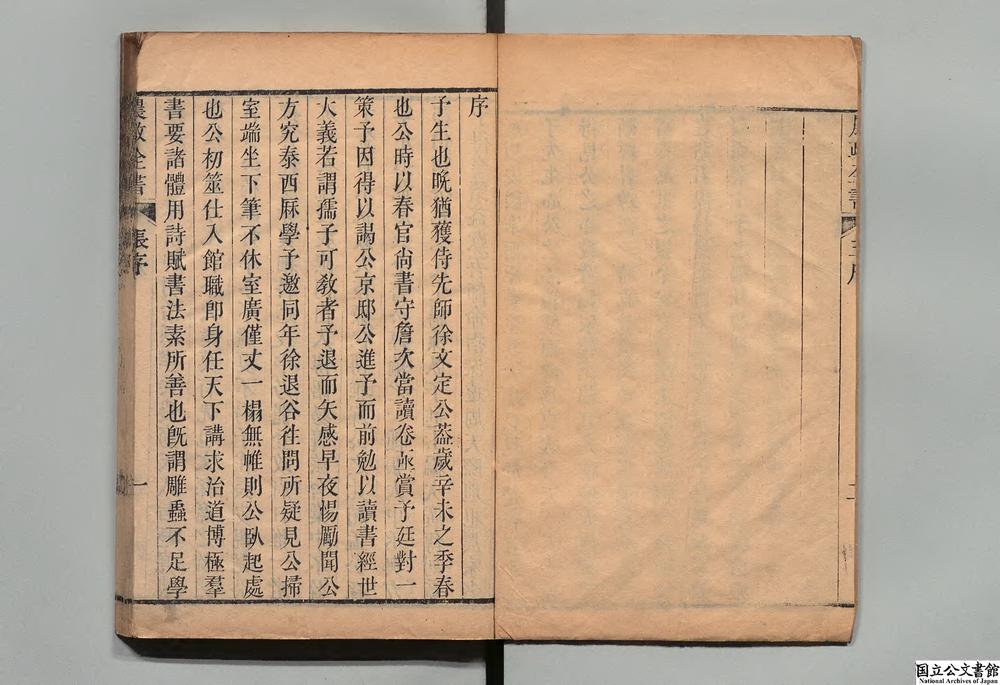 序
予生也晩猶獲侍先師徐文定公葢歲辛未之季春
也公時以春官尙書守詹次當讀卷亟賞予廷對一
策予因得以謁公京邸公進予而前勉以讀書經世
大義若謂孺子可敎者予退而矢感早夜惕勵聞公
方究泰西厤學予邀同年徐退谷徃問所疑見公掃
室端坐下筆不休室廣僅丈一榻無帷則公臥起處
也公初筮仕入館職卽身任天下講求治道博極羣
書要諸體用詩賦書法素所善也旣謂雕蟲不足學
農政全書 張序 一
国立公文書館
National Archives of Japan